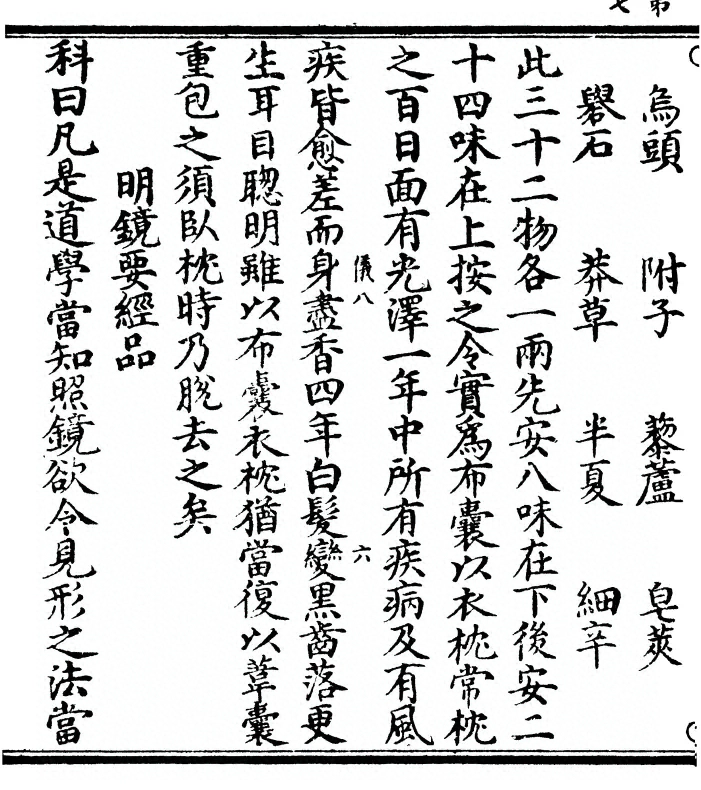 烏頭 附子 藜蘆 皂莢
礜石 莽草 半夏 細辛
此三十二物各一兩先安八味在下後安二
十四味在上按之令實爲布囊以衣枕常枕
之百日面有光澤一年中所有疾病及有風
儀八 六
疾皆愈差而身盡香四年白髮變黑齒落更
生耳目聦明雖以布囊衣枕猶當復以葦囊
重包之須臥枕時乃脫去之矣
明鏡要經品
科曰凡是道學當知照鏡欲令見形之法當